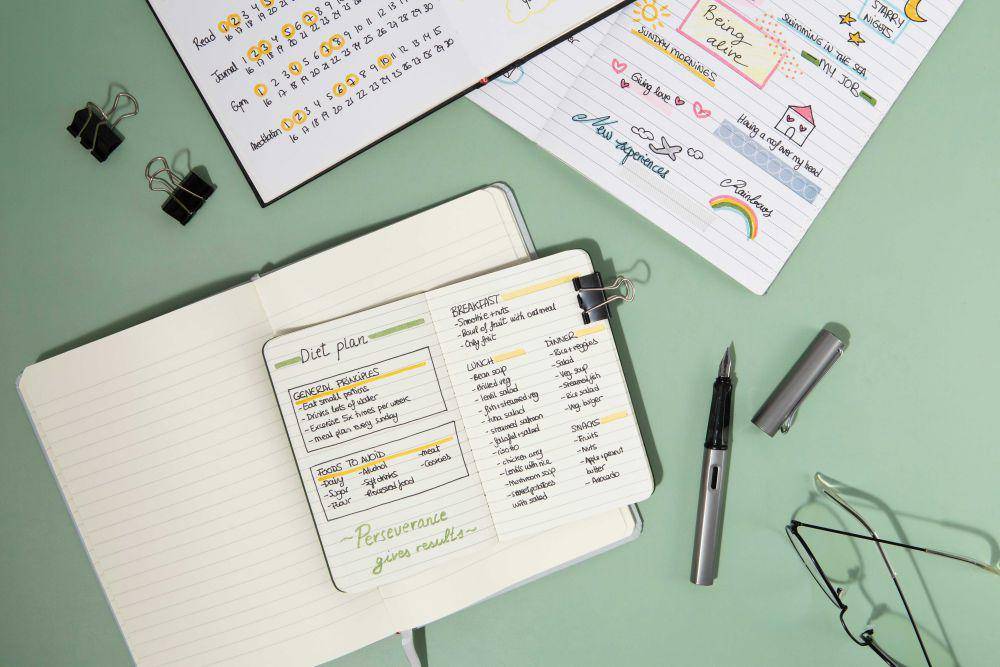 Read
16 17 18 19 20 21 22 23 24 25 26 27 28 29 30
Journal
16 17 18 19 20 21 22 23 24 25 26 27 28 29 30
Gym 1 2 3 4 5 6 7 8 9 10 11 12 13 14 15
16 17 18 19 20 21 22 23 24 25 26 27 28 29 30
Meditation 1 2 3 4 5 6 7 8 9 10 11 12 13 14 15
16 17 18 19 20 21 22 23 24 25 26 27 28 29 30
Being
alive
STARRY
NIGHTS
SWIMMING IN THE SEA
SUNDAY MORNINGS
MY JOB
Giving love
Having a roof over my head
New experiences
Rainbows
Diet plan
GENERAL PRINCIPLES
-Eat small portions
-Drinks lots of water
-Excersise six times per week
-meal plan every sunday
FOODS TO AVOID
-Dairy -Alcohol -meat
-Sugar -Soft drinks -Cookies
-Flour -Processed food
~Perseverance
gives results~
BREAKFAST
-Smoothie + nuts
-Bowl of fruit with oatmeal
-Only fruit
LUNCH
-Bean soup
-Grilled veg
-lentil salad
-fish+steamed veg
-tuna salad
-steamed salmon
-falafel+salad
-risotto
-chicken curry
-Lentils with rice
-Mushroom soup
-sweet potatoes
with salad
DINNER
-Rice+veggies
-Salad
-Veg soup
-Steamed fish
-Rice salad
-Veg burger
SNACKS
-Fruits
-Nuts
-Apple+peanut
butter
-Avocado